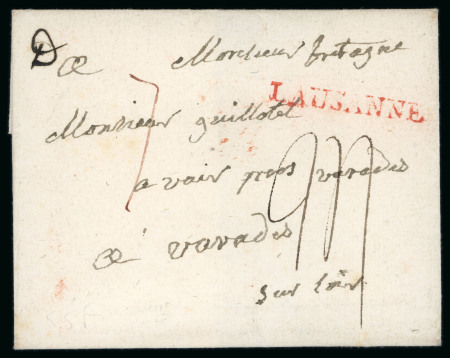 Monsieur bretagne
LAUSANNE
Monsieur guillotel
7
a vair près varades
varades
sur loir